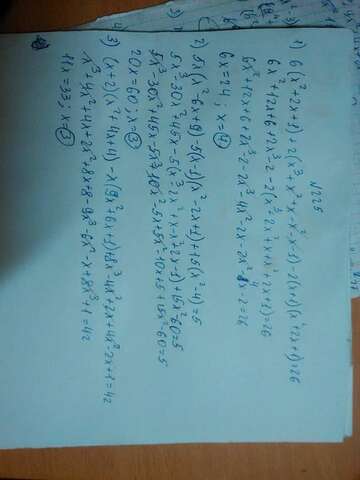 N225
1) 6(x²+2x+1)+2(x³+x²+x-x²-x-1)-2(x+1)(x²+2x+1)=26
6x²+12x+6+2x³-2-2(x³+2x²+x+x²+2x+1)=26
6x²+12x+6+2x³-2-2x³-4x²-2x-2x²-4x-2=26
6x=24; x=4
2) 5x(x²-6x+9)-5(x-1)(x²-2x+1)+15(x²-4)=5
5x³-30x²+45x-5(x³-2x²+x-x²+2x-1)+15x²-60=5
5x³-30x²+45x-5x³+10x²-5x+5x²-10x+5+15x²-60=5
20x=60; x=3
3) (x+2)(x²+4x+4)-x(9x²+6x+1)+8x³-4x²+2x+4x²-2x+1=42
x³+4x²+4x+2x²+8x+8-9x³-6x²-x+8x³+1=42
11x=33; x=3